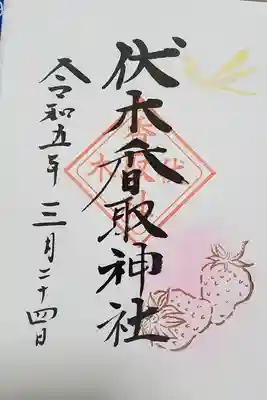 伏木香取神社
令和五年 三月二十四日